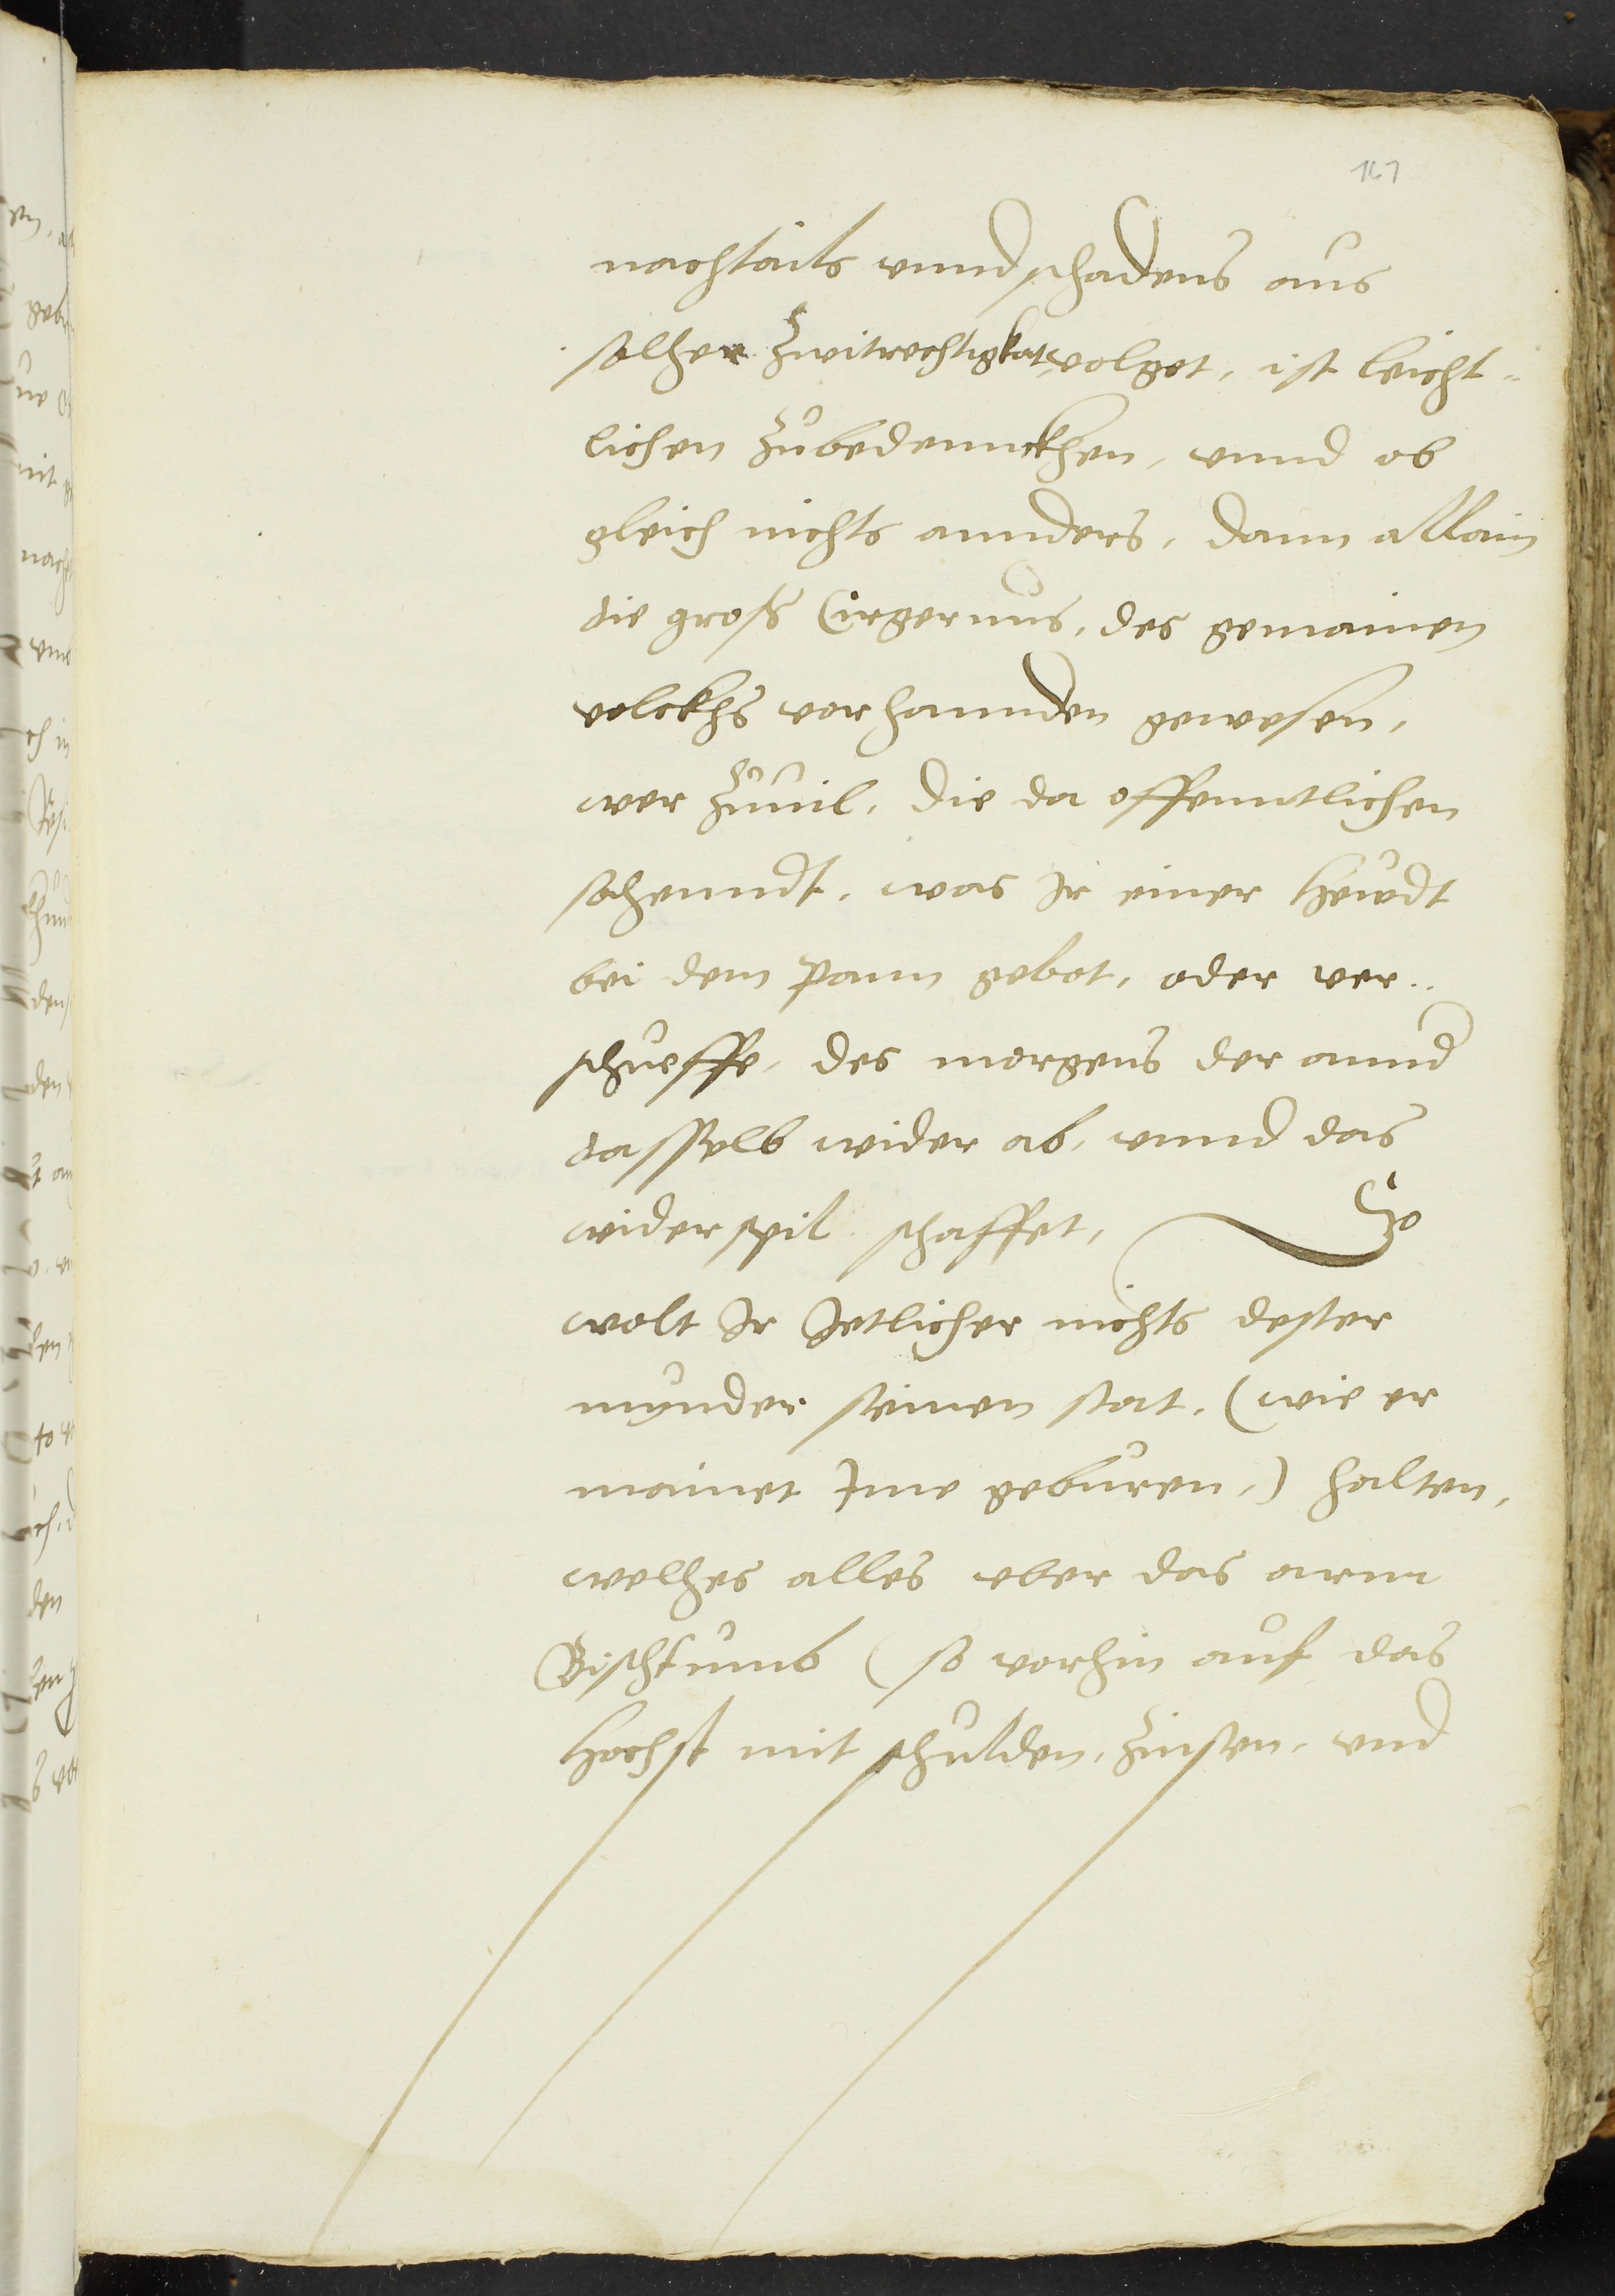 167
nachtails vnnd schadens aus
solher Zwitrechtigkat volget, ist leicht-
lichen Zubedennckhen, vnnd ob
gleich nichts annders, dann allain
die gross Ergernus, des gemainen
volckhs vorhannden gewesen,
wer Zuuil, die da offenntlichen
sehenndt, was Ir einer heudt
bei dem pann gebot, oder ver-
schueffe, des morgens der annd
dasselb wider ab, vnnd das
widerspil schaffet, So
wolt Ir Jetlicher nichts dester
mynder seinen stat, (wie er
mainet Ime geburen,) halten,
welhes alles vber das arm
Bischtumb (so vorhin auf das
hochst mit schulden, Zinsen, vnd